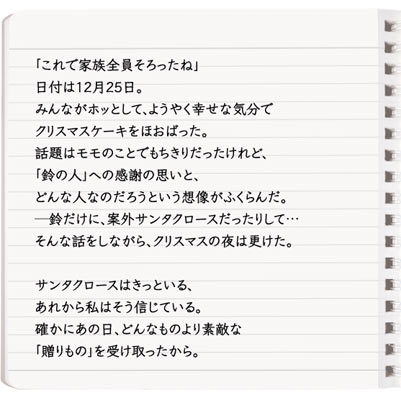 「これで家族全員そろったね」
日付は12月25日。
みんながホッとして、ようやく幸せな気分で
クリスマスケーキをほおばった。
話題はモモのことでもちきりだったけれど、
「鈴の人」への感謝の思いと、
どんな人なのだろうという想像がふくらんだ。
―鈴だけに、案外サンタクロースだったりして…
そんな話をしながら、クリスマスの夜は更けた。

サンタクロースはきっといる、
あれから私はそう信じている。
確かにあの日、どんなものより素敵な
「贈りもの」を受け取ったから。